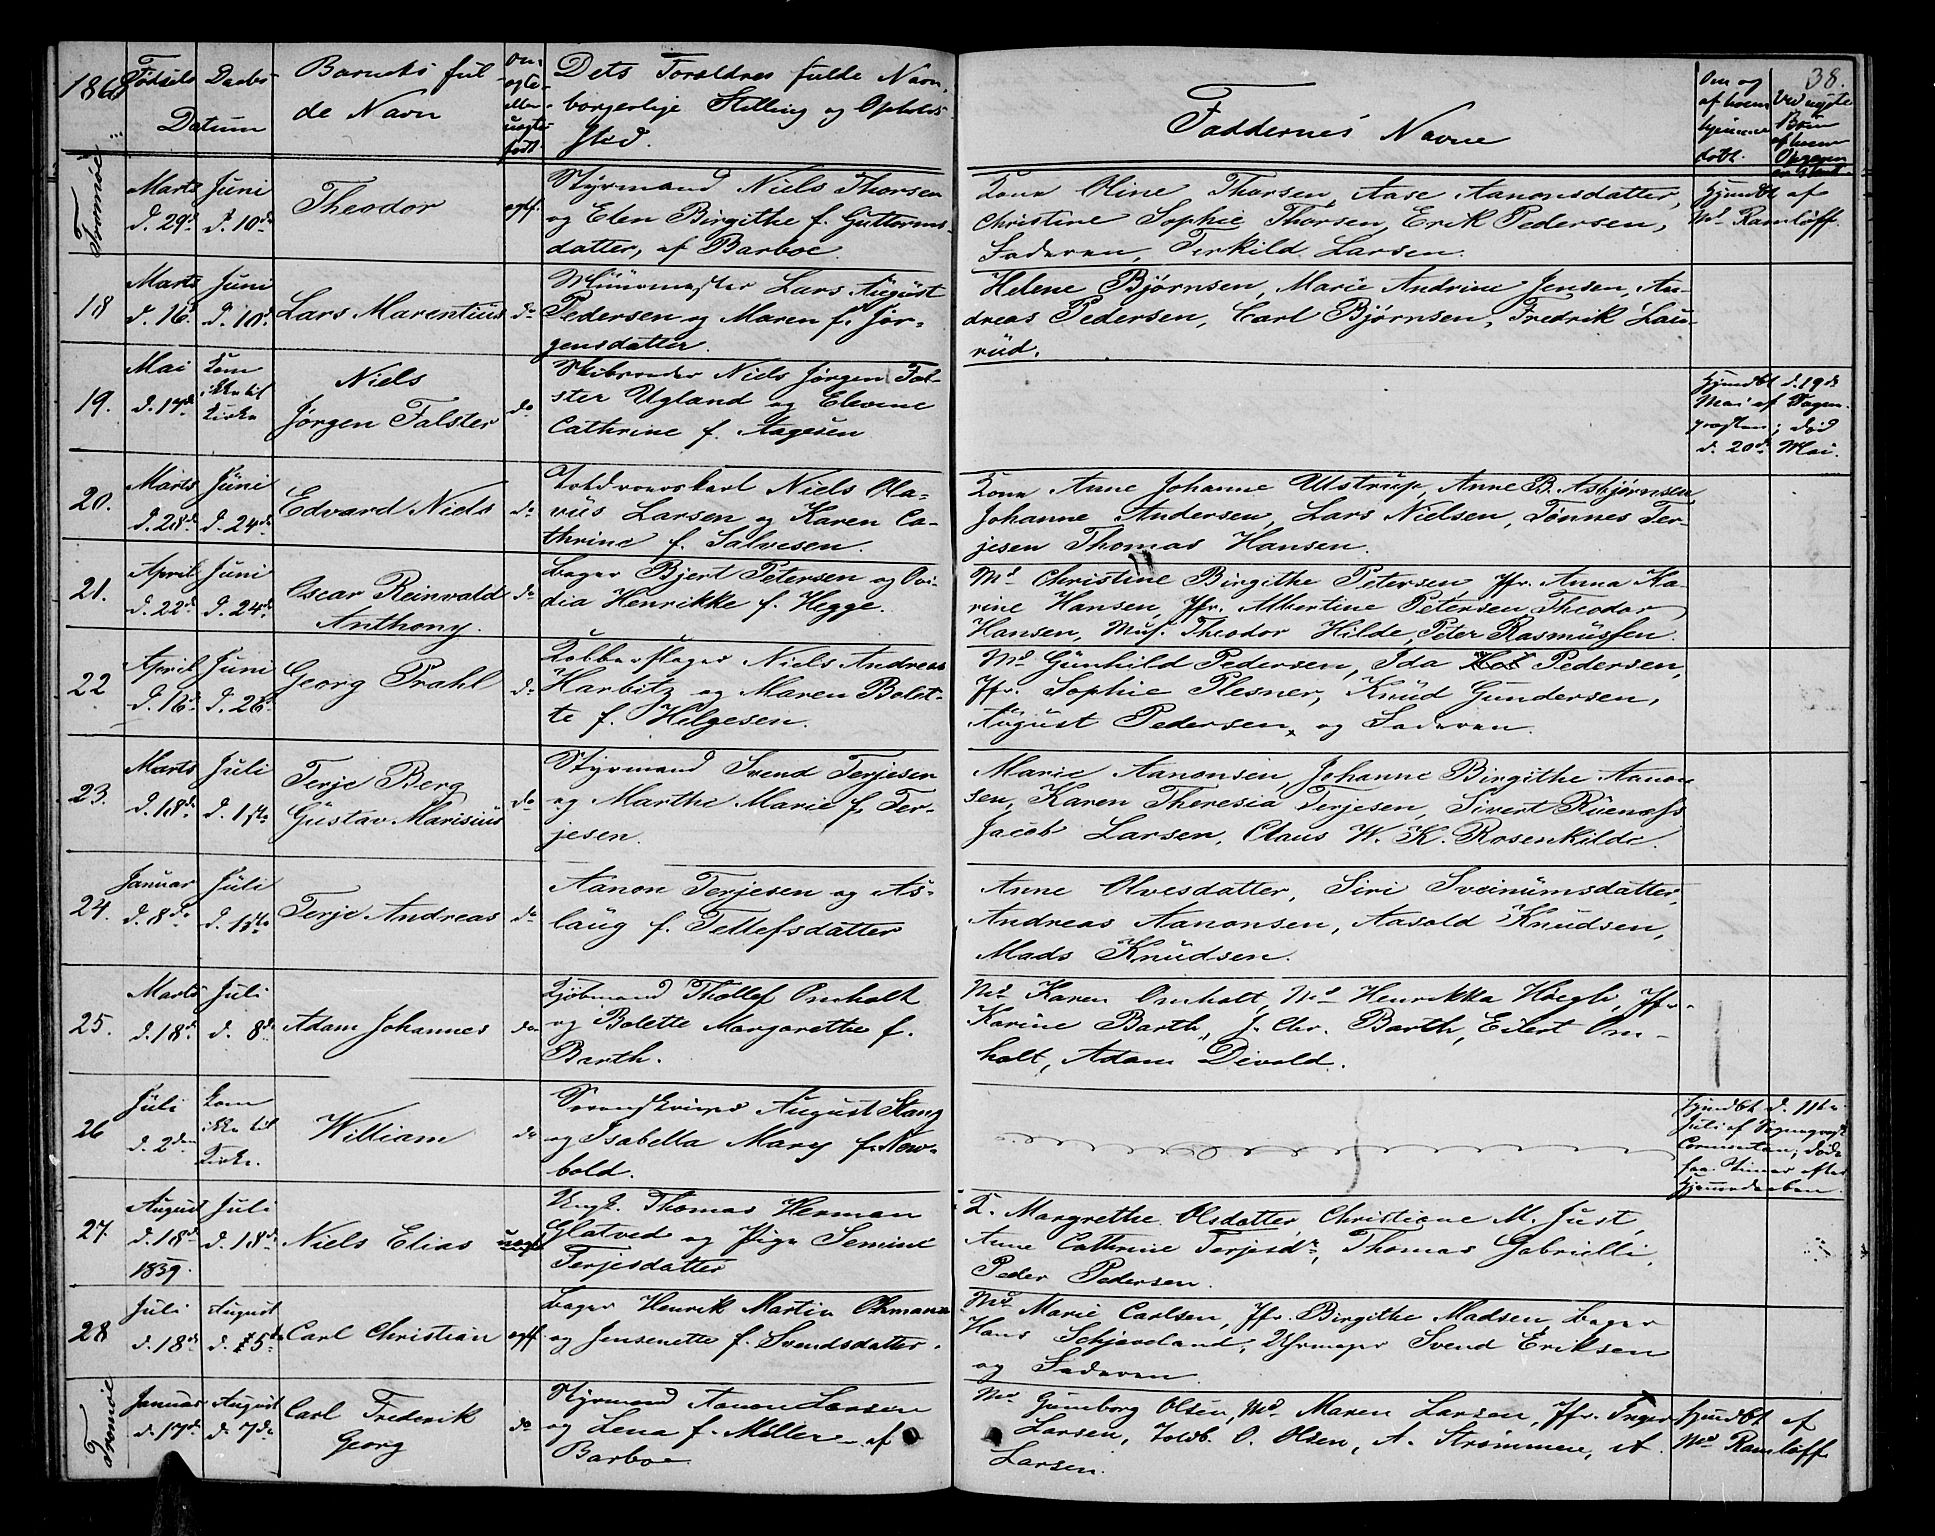 38.
1860 Fødsels Daabs Datum
Barnets fulde Navn
Om ægte eller uægte født.
Dets Forældres fulde Navn, borgerlige Stilling og Opholdssted.
Faddernes Navne
Om og af hvem hjemmedøbt.
Ved uægte Børn af hvem Opgaven
Tromøe Marts d. 29de Juni d. 10de Theodor ægtf.
Styrmand Niels Thorsen
og Elen Birgithe f. Guttorms-
datter, af Barboe.
Kone Oline Thorsen, Aase Aanonsdatter,
Christine Sophie Thorsen, Erik Pedersen,
Faderen, Terkild Larsen.
Hjmdbt af
Md. Ramløff.
18 Marts d. 16de Juni d. 10de Lars Marentius do
Muurmester Lars August
Pedersen og Maren f. Jør-
gensdatter.
Helene Bjørnsen, Marie Andrine Jensen, An-
dreas Pedersen, Carl Bjørnsen, Fredrik Lau-
rud.
19. Mai d. 17de Kom ikke til Kirke
Niels
Jørgen Falster do
Skibsreder Niels Jørgen Fal-
ster Ugland og Elevine
Cathrine f. Aagesen
Hjmdbt d. 19de
Mai af Sogne-
præsten; død
d. 20de Mai.
20. Marts d. 28de Juni d. 24de Edvard Niels do
Toldroerskarl Niels Ola-
vus Larsen og Karen Ca-
thrine f. Salvesen.
Kone Anne Johanne Ulstrup, Anne B. Asbjørnsen
Johanne Andersen, Lars Nielsen, Tønnes Ter-
jesen Thomas Hansen.
21. April d. 22de Juni d. 24de
Oscar Reinvald
Anthony. do
Bager Bjert Petersen og Ovi-
dia Henrikke f. Hegge.
Md. Christine Birgithe Petersen, Jfr. Anna Ka-
rine Hansen, Jfr. Albertine Petersen, Theodor
Hansen, Mus. Theodor Hilde, Peter Rasmussen.
22 April d. 16de Juni d. 26de Georg Prahl do
Kobberslager Niels Andreas
Harbitz og Maren Bolet-
te f. Helgesen.
Md. Gunhild Pedersen, Ida Pedersen,
Jfr. Sophie Plesner, Knud Gundersen,
August Pedersen, og Faderen.
23. Marts d. 18de Juli d. 1ste
Terje Berg
Gustav Marisius do
Styrmand Svend Terjesen
og Marthe Marie f. Ter-
jesen.
Marie Aanonsen, Johanne Birgithe Aanon-
sen, Karen Theresia Terjesen, Sivert Ruenæss
Jacob Larsen, Claus W. K. Rosenkilde.
24. Januar d. 8de Juli d. 1ste Terje Andreas do
Aanon Terjesen og As-
laug f. Tellefsdatter
Anne Olvesdatter, Siri Sveinumsdatter,
Andreas Aanonsen, Aasold Knudsen,
Mads Knudsen.
25. Marts d. 18de Juli d. 8de Adam Johannes do
Kjøbmand Thollef Omholt
og Bolette Margarethe f.
Barth.
Md. Karen Omholt, Md. Henrikka Høegh, Jfr.
Karine Barth, J. Chr. Barth, Eilert Om-
holt, Adam Devold.
26 Juli d. 2den Kom ikke til Kirke. William do
Sorenskriver August Stang
og Isabella Mary f. New-
bold.
Hjmdbt d. 11te
Juli af Sognepræst
døde
faa Timer efter
Hjemmedaaben.
27. August d. 18de 1859. Juli d. 18de Niels Elias uægte
Ungk. Thomas Herman
Glatved og Pige Semine
Terjesdatter
K. Margrethe Olsdatter, Christiane M. Just,
Anne Cathrine Terjesdr, Thomas Gabrielli,
Peder Pedersen.
28 Juli d. 18de August d. 5te Carl Christian ægtf.
Bager Henrik Martin Ohmann
og Jensenette f. Svendsdatter.
Md. Marie Carlsen, Jfr. Birgithe Madsen, Bager
Hans Schjaveland, Uhrmager Svend Eriksen
og Faderen.
Tromøe Januar d. 17de August d. 7de
Carl Frederik
Georg do
Styrmand Aanon Larsen
og Lena f. Møller, af
Barboe
Md. Gunborg Olsen, Md. Maren Larsen, Jfr. Inger
Larsen, Toldb. O. Olsen, A. Strømmen, A.
Larsen.
Hjmdbt af
Md. Ramløff